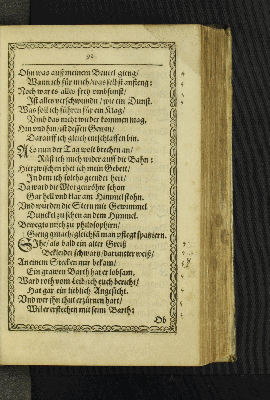 Ohn was auß meinem Beutel gieng/
Wann ich für mich was selbst anfieng:
Noch war es alles frey vmbsunst/
Ist alles verschwunden/ wie ein Dunst.
Was soll ich führen für ein Klag/
Vnnd das nicht wider kommen mag.
Hin vnd hin/ ist dessen
Darauff ich gleich entschlaffen bin.
Als nun der Tag wolt brechen an/
Rüst ich mich wider auff die Bahn:
Hierzwischen thet ich mein Gebett/
In dem ich solchs geendet hett/
Da ward die Morgenröhte schon
Gar hell vnd klar am Himmel stohn.
Vnd wurden die Stern mit Gewimmel
Dunckel zu sehen an dem Himmel.
Bewegte mich zu philosophirn/
Gieng gmach/ gleichsã man pflegt spatzieren.
Sihe/ als bald ein alter Greiß
Bekleidet schwartz/ darunter weiß/
An einem Stecken mir bekam/
Ein grawen Barth hat er lobsam,
Ward roth vom Leib/ ich euch bericht/
Hat gar ein lieblich Angesicht.
Vnd wer ihn thut erzürnen hart/
Will er erstechen mit seim Barth:
Ob